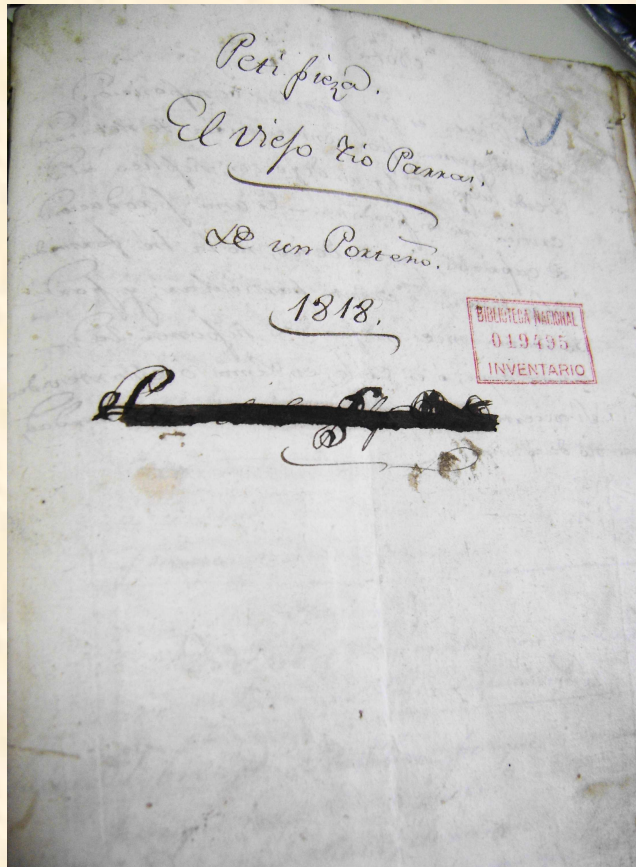 Peti pieza.
El viejo tio Parras.
De un Porteño.
1818.
BIBLIOTECA NACIONAL
019495
INVENTARIO